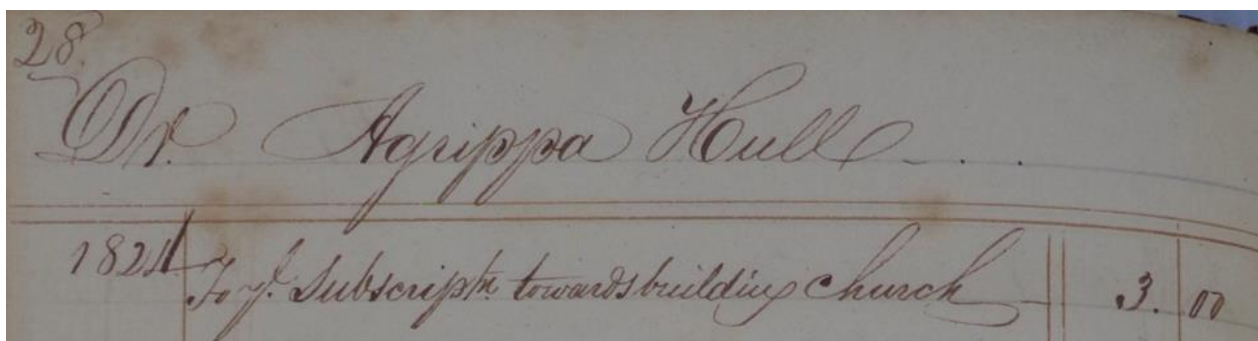 28.
Dr. Agrippa Hull
1824 To yr. Subscriptn. towards building church 3. 00